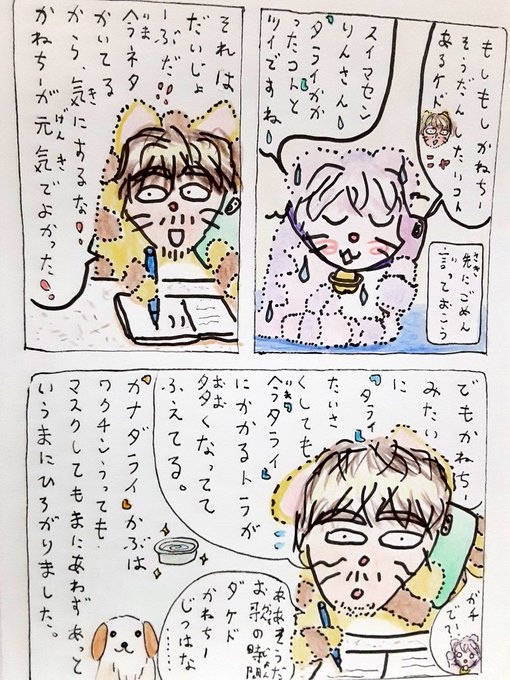 もしもしかねちー
そうだんしたいコト
あるケド
先にごめん
言っておこう
スイマセン
りんさん
タライがか
ったコトと
ツイですね
それは
だいじょ
ーぶだ
ヘラネタ
かいてる
から、気にするな。
かねちーが元気でよかった。
でもかねちー
みたい
に
タライ
たいさ
くしても
ヘラタライ
にかかるトラが
多くなってて
ふえてる。
ガチ
で…
カナダライかぶは
ワクチンうっても
マスクしてもまにあわずあっと
いうまにひろがりました。
ああそうだ
お歌の時間
ダケド
かねちー
じつはな……